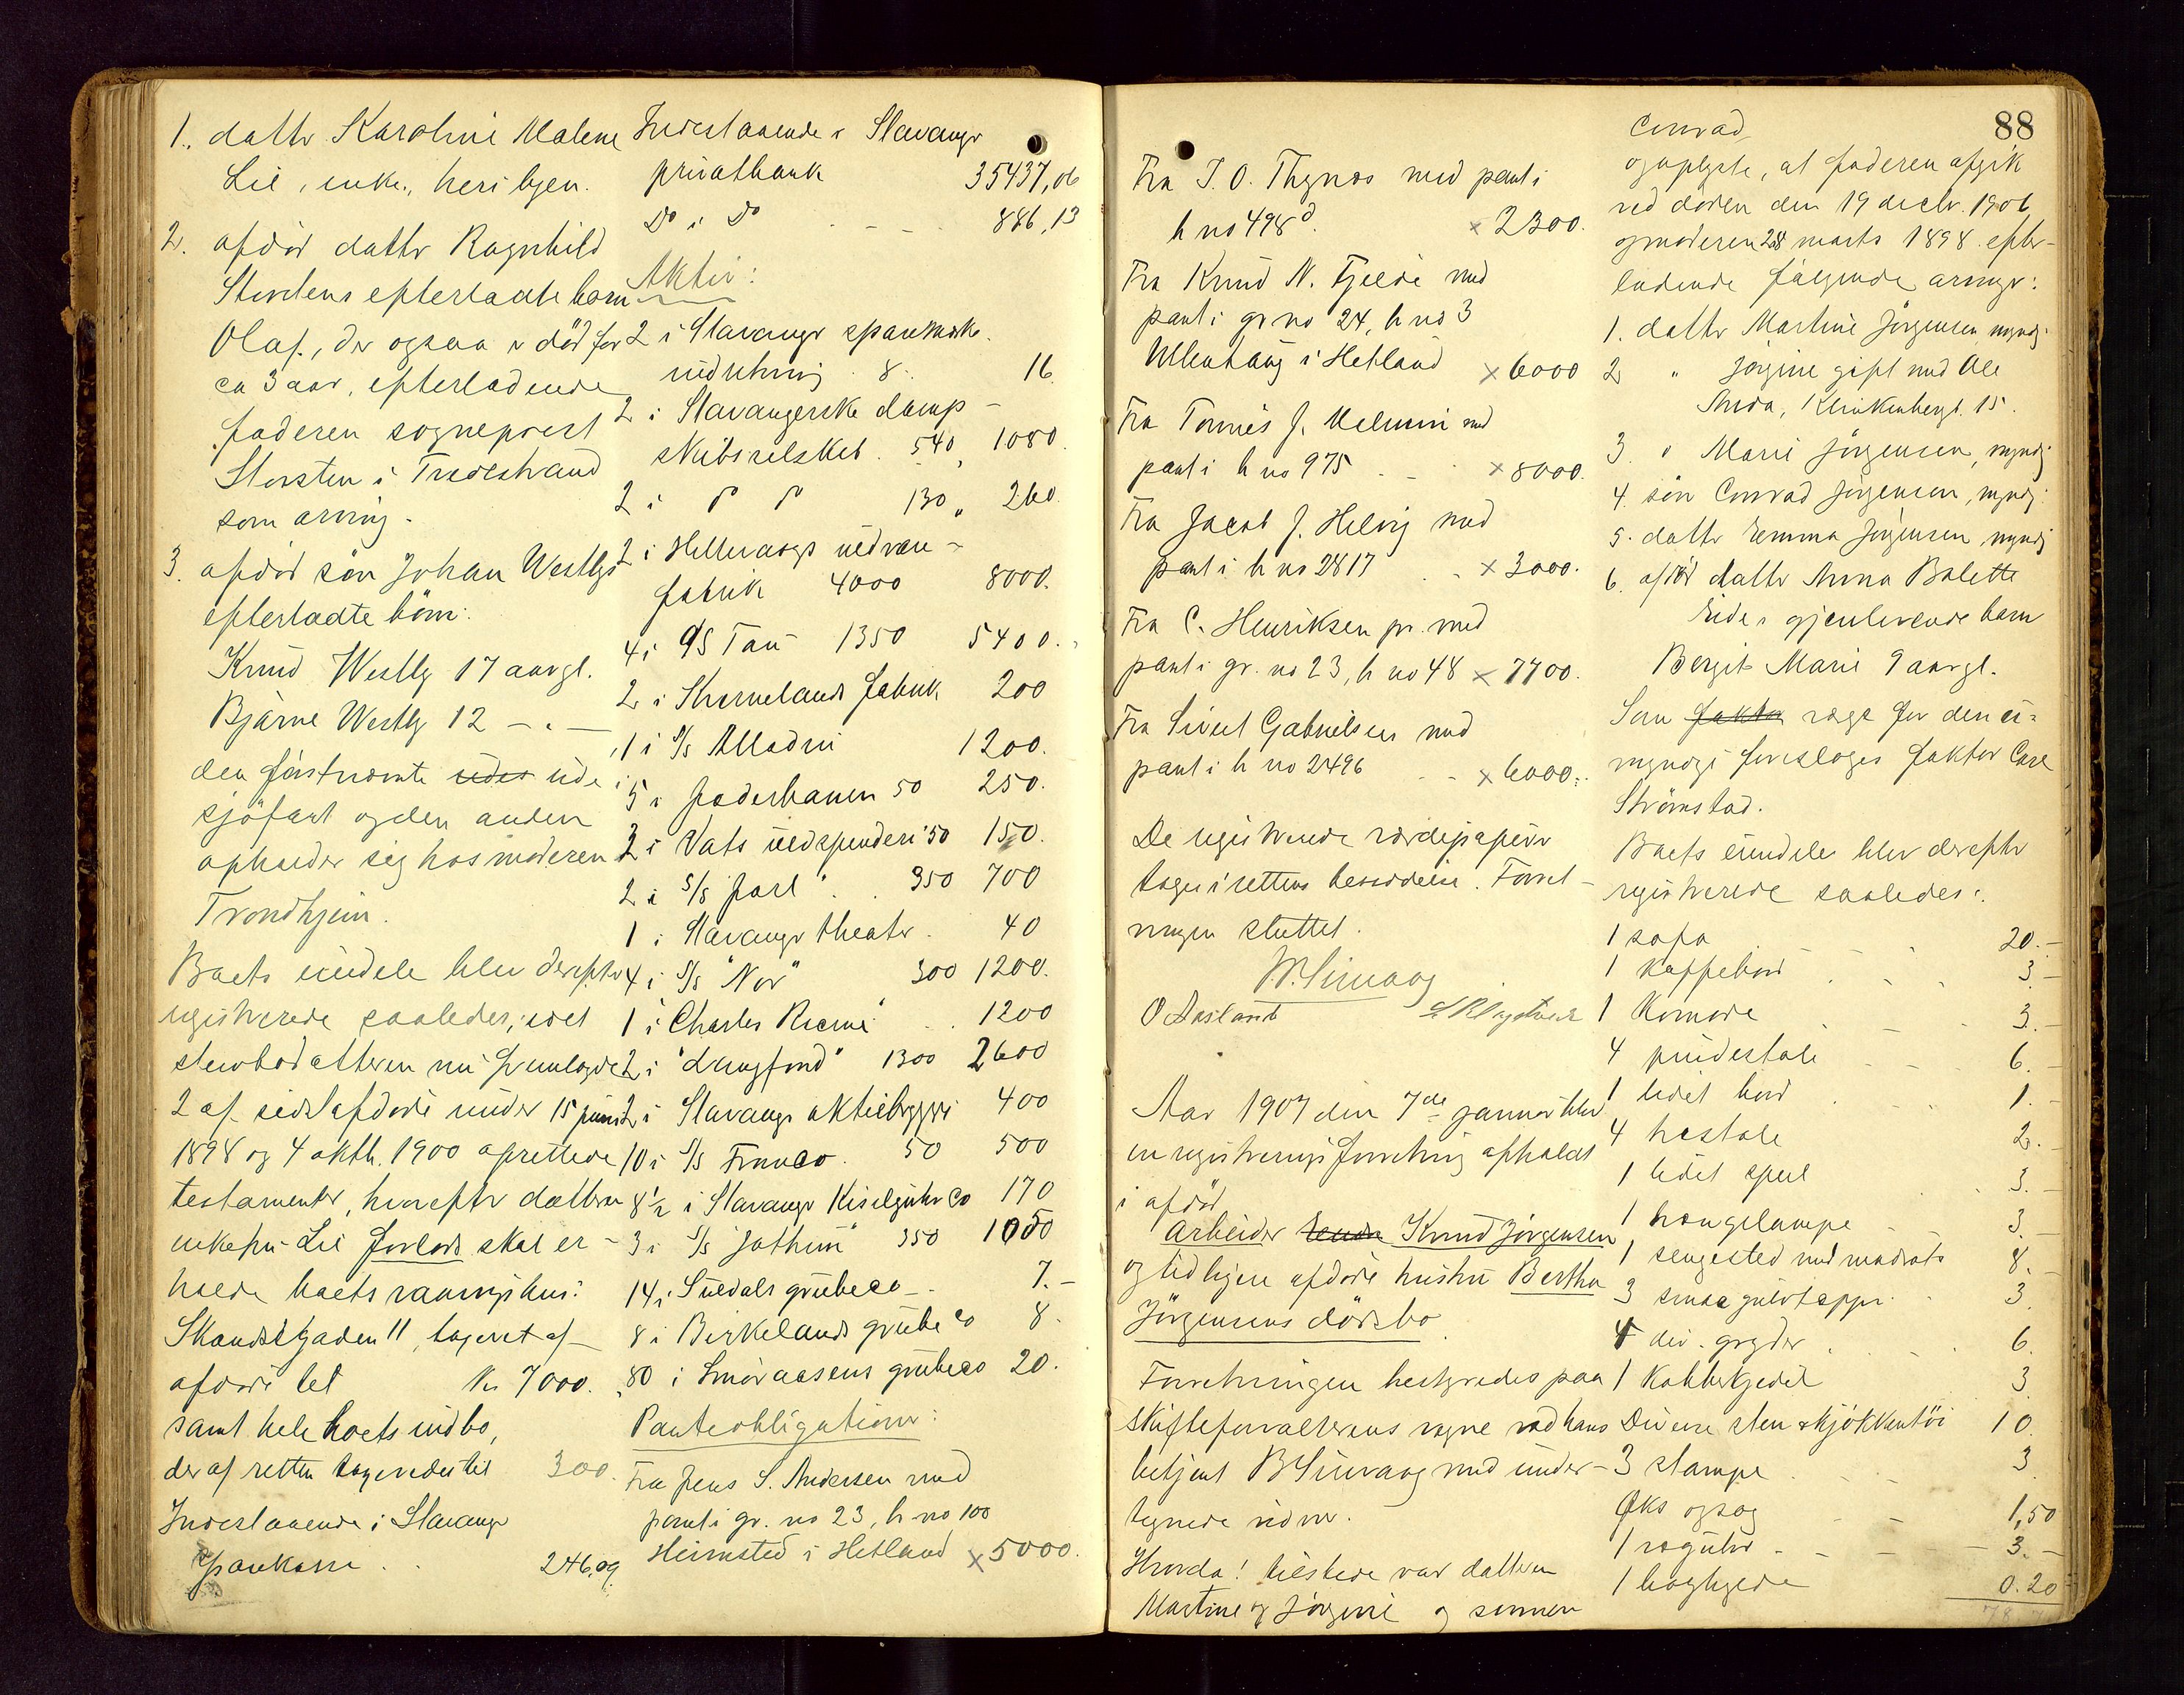 1. datter Karoline Malene
Lie, enke, her i byen.
2. afdød datter Ragnhild
Storstens efterladte barn
Olaf, der ogsaa er død for
ca 3 aar, efterladende
faderen sogneprest
Storsten i Tvedestrand
som arving.
3. afdød søn Johan Westlys
efterladte børn:
Knud Westly 17 aar gl.
Bjarne Westly 12 - " -
den førstnævnte uden ude i
sjøfart og den anden
opholder sig hos moderen i
Trondhjem.
Boets eiendele blev derefter
registrerede saaledes, idet
stervboddatteren nu fremlagde
2 af sidstafdøde under 15 juni
1898 og 4 oktbr. 1900 oprettede
testamenter, hvorefter datteren
enkefru Lie forlods skal er-
holde boets vaaningshus:
Skandsegaden 11, taxeret af
afdøde til Kr 7000.
samt hele boets indbo,
der af retten taxeredes til 300.
Indestaaende i Stavanger
sparekasse . . 246,09
Indestaaende i Stavanger
privatbank 35437,06
Do i Do - - - 886,13
Aktier:
2 i Stavanger sparekasse
indretning 8 16
2 i Stavangerske damp-
skibsselskab . 540 " 1080.
2 i do do 130 " 260.
2 i Hillevaags uldvare-
fabrik 4000 8000.
4 i D/S Tau 1350 5400.
2 i Skurvelands fabrik 200
1 i S/S Alladin 1200.
5 i Jæderbanen 50 250.
3 i Vats uldspinderi 50 150.
2 i S/S "Jarl" . 350 700
1 i Stavanger theater. 40
4 i S/S "Nor" 300 1200.
1 i Charles Racine . . 1200
2 i "Langfond" 1300 2600
2 i Stavanger aktiebryggeri 400
10 i S/S Franco . 50 500
8 1/2 i Stavanger Kiselguhr Co 170
3 i S/S "Jathun" 350 1050
14 i Suldals grubeco - 7.-
8 i Birkelands grube Co 8.
80 i Smøraasens grubeco 20.
Panteobligationer:
Fra Jens S. Andersen med
pant i gr. no 23, b no 100
Heimsted i Hetland x 5000.
Fra T. O. Thgnæs med pant i
b no 498 d. x 2300.
Fra Knud N. Fjelde med
pant i gr no 24, b no 3
Ullenhaug i Hetland x 6000
Fra Tønnes J. Melhuus med
pant i b no 975 - - x 8000.
Fra Jacob J. Helvig med
pant i b no 2817 . - x 3000.
Fra C. Henriksen jr. med
pant i gr. no 23, b no 48 x 7700.
Fra Sivert Gabrielsen med
pant i b no 2496 - - x 6000.
De registrerede værdipapirer
toges i rettens besiddelse. Forret-
ningen sluttet.
O Aasland
Aar 1907 den 7de januar blev
en registreringsforretning afholdt
i afdød
arbeider Knud Jørgensen
og tidligere afdøde hustru Bertha
Jørgensens dødsbo.
Forretningen bestyredes paa
skifteforvalterens vegne ved hans
betjent B Simaag med under-
tegnede vidner.
Hvorda! tilstede var døttrene
Martine og Jørgine og sønnen
88
Conrad
og oplyste, at faderen afgik
ved døden den 19 decbr. 1906
og moderen 28 marts 1898 efter-
ladende følgende arvinger:
1. datter Martine Jørgensen, myndig
2 " Jørgine gift med Ole
Anda, Klinkenbergt. 15.
3. " Marie Jørgensen, myndig
4. søn Conrad Jørgensen, myndig.
5. datter Emma Jørgensen, myndig
6. afdød datter Anna Bolette
Eides gjenlevende barn
Bergit Marie 9 aar gl.
Som faktor værge for den u-
myndige foresloges faktor Carl
Strømstad.
Boets eiendele blev derefter
registrerede saaledes:
1 sofa 20.-
1 kaffebord . . . 3.-
1 Komode . - - 3.-
4 pindestole - - - 6.-
1 lidet bord . - - 1.-
4 træstole 2.-
1 lidet speil . . 3.-
1 hængelampe - . 3.-
1 sengested med madrats 8.-
3 smaa gulvtæpper . 3.
4 div. gryder . . . 6.
1 Kobberkjedel 3
Diverse sten & kjøkkentøi 10.
3 stampe . - - 3
Øks og sag - - 1,50
1 vægur - - - - 3.-
1 baghgede 0.20